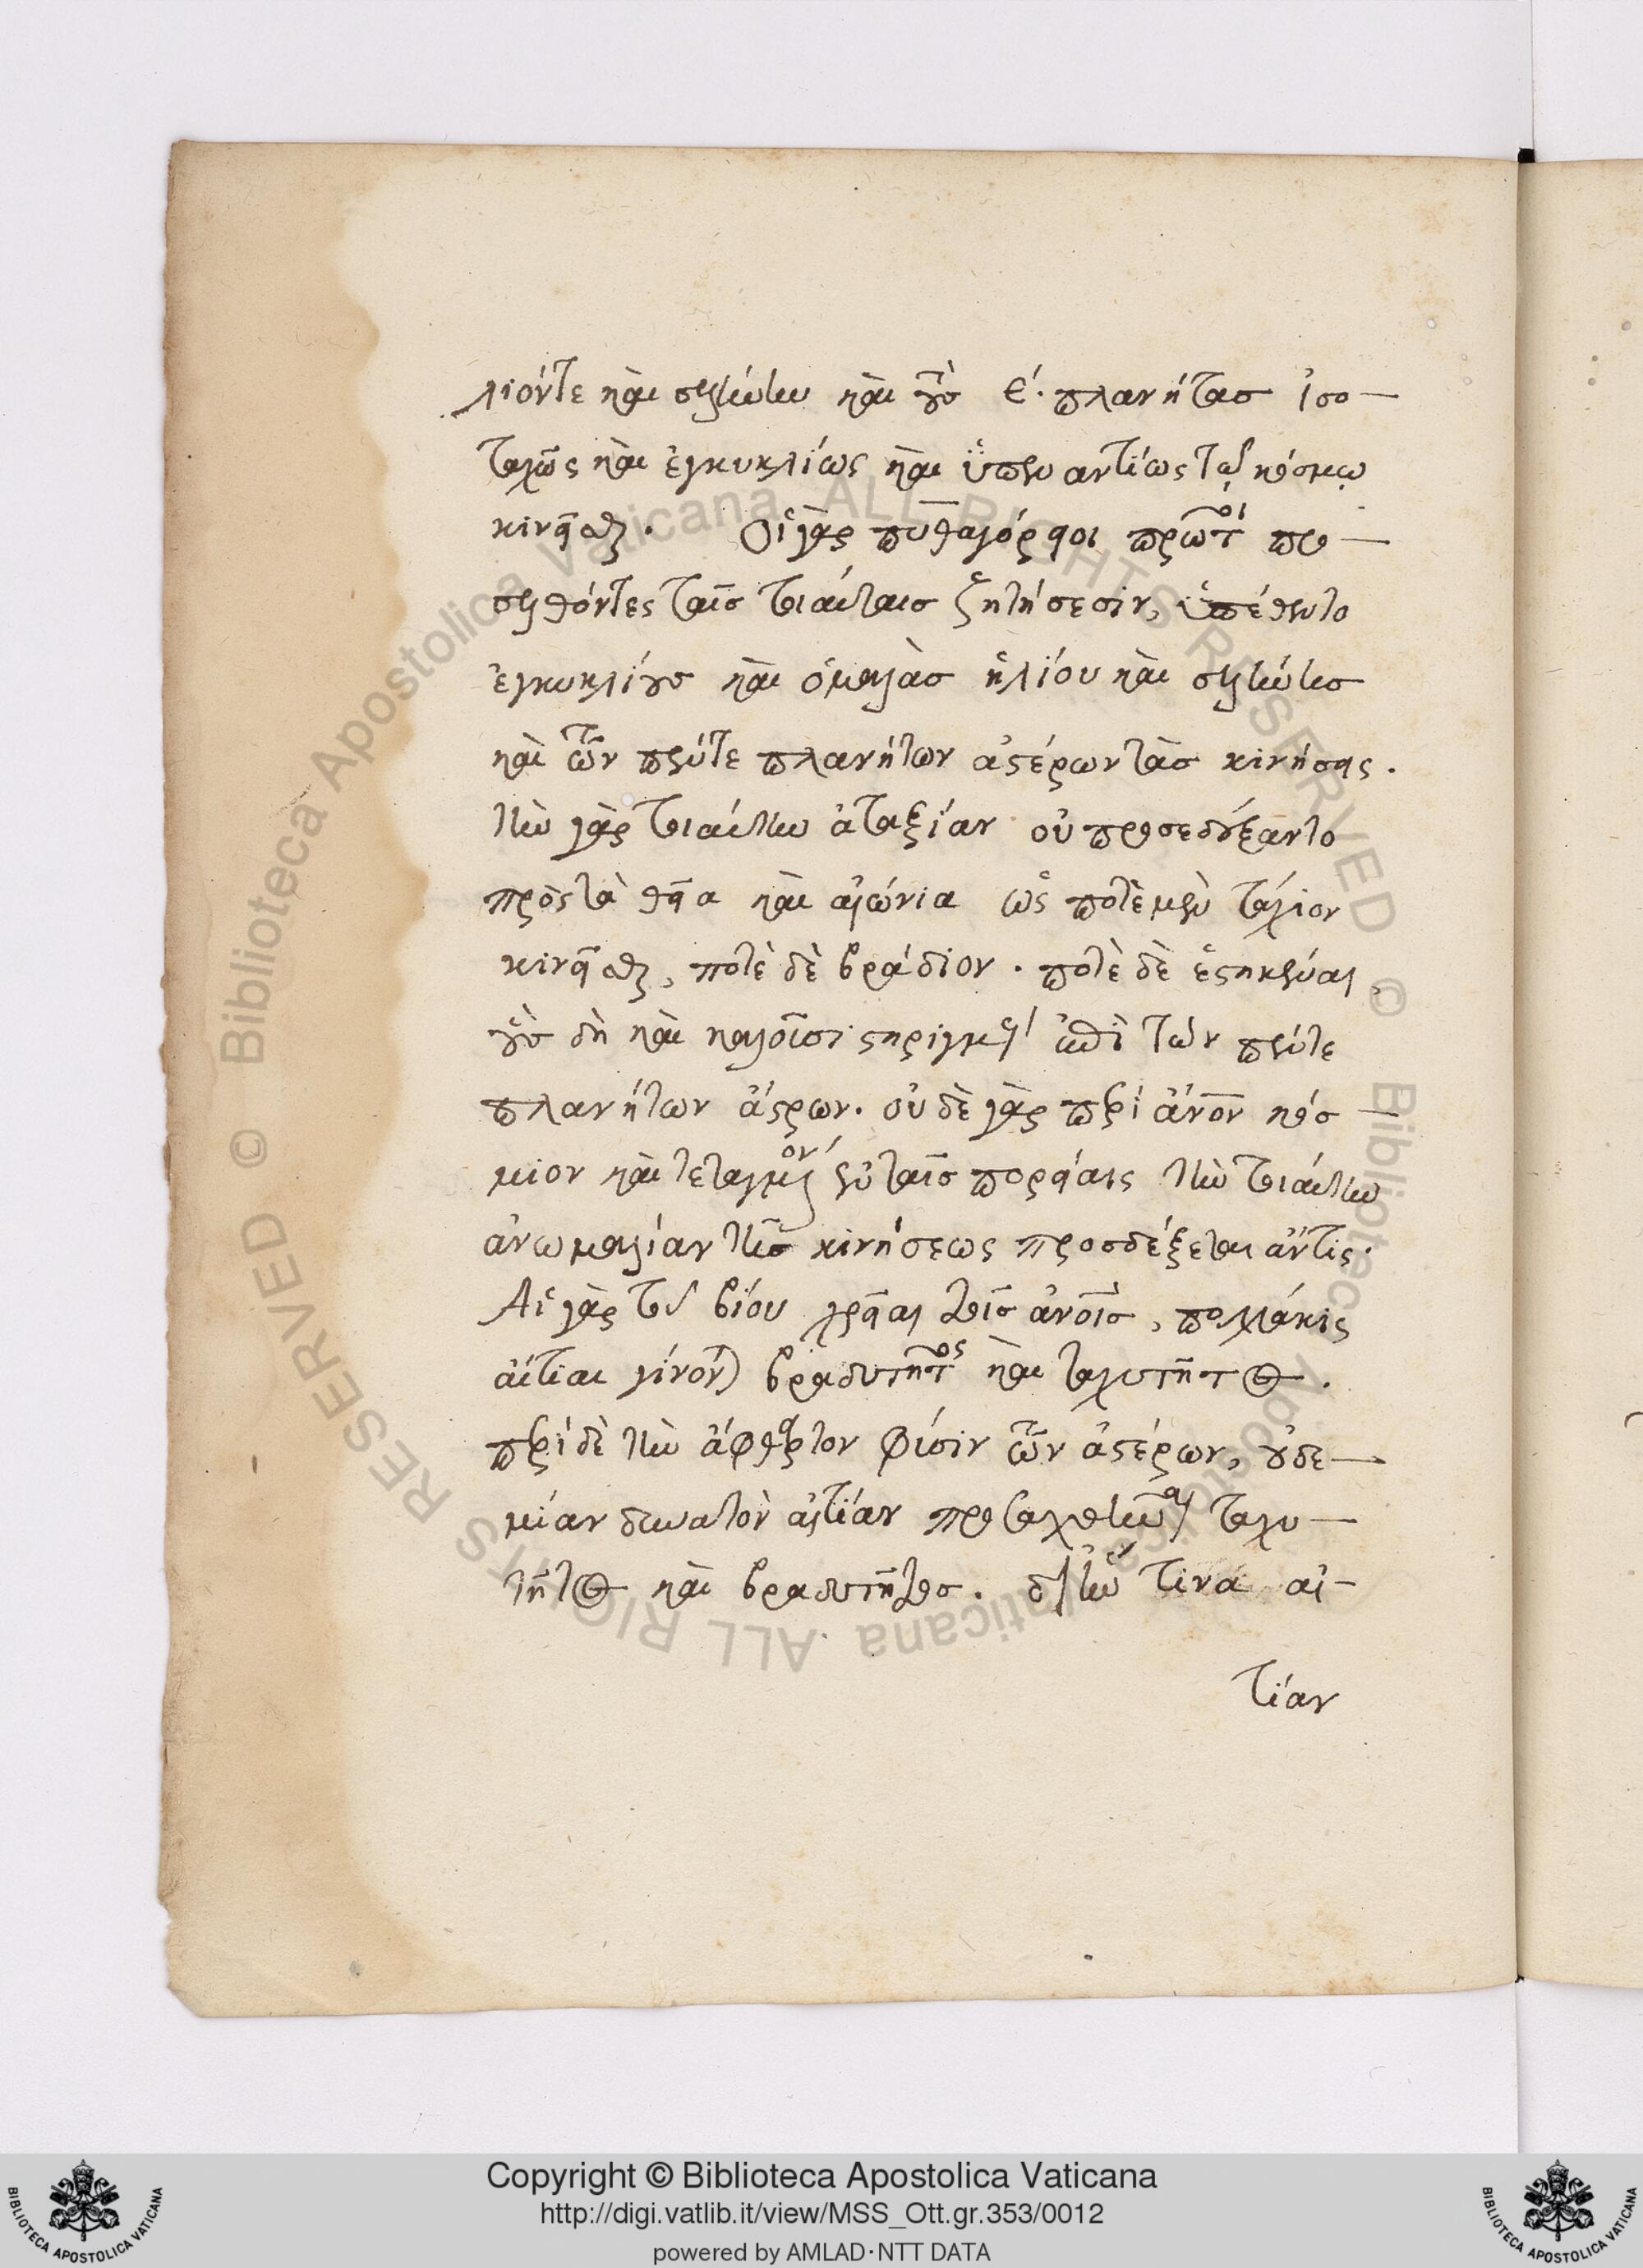 λιόντε καὶ σελήνην καὶ τοὺς ε΄. πλανήτας ἰσο-
ταχῶς καὶ ἐγκυκλίως καὶ ὑπεναντίως τῷ κόσμῳ
κινεῖσθαι. Οἱ γὰρ πυθαγόρειοι πρῶτοι προ-
σελθόντες ταῖς τοιαύταις ζητήσεσιν, ὑπέθεντο
ἐγκυκλίους καὶ ὁμαλὰς ἡλίου καὶ σελήνης
καὶ τῶν πέντε πλανήτων ἀστέρων τὰς κινήσεις.
τὴν γὰρ τοιαύτην ἀταξίαν οὐ προσεδέξαντο
πρὸς τὰ θεῖα καὶ αἰώνια ὡς ποτὲ μὲν τάχιον
κινεῖσθαι, ποτὲ δὲ βράδιον. ποτὲ δὲ ἑστηκέναι,
οὓς δὴ καὶ καλοῦσι στηριγμοὺς ἐπὶ τῶν πέντε
πλανήτων ἄστρων. οὐδὲ γὰρ περὶ ἄνον κόσ-
μιον καὶ τεταγμένον ἐν ταῖς πορείαις τὴν τοιαύτην
ἀνωμαλίαν τῆς κινήσεως προσδέξεται ἄν τις.
Αἱ γὰρ τοῦ βίου χρεῖαι τοῖς ἀνοις, πολλάκις
αἴτιαι γίνονται βραδυτῆτος καὶ ταχυτῆτος.
περὶ δὲ τὴν ἄφθαρτον φύσιν τῶν ἀστέρων, οὐδε-
μίαν δυνατὸν αἰτίαν προσαχθῆναι ταχυ-
τῆτος καὶ βραδυτῆτος. δι' ἣν τινα αἰ-
τίαν
Copyright © Biblioteca Apostolica Vaticana
http://digi.vatlib.it/view/MSS_Ott.gr.353/0012
powered by AMLAD·NTT DATA